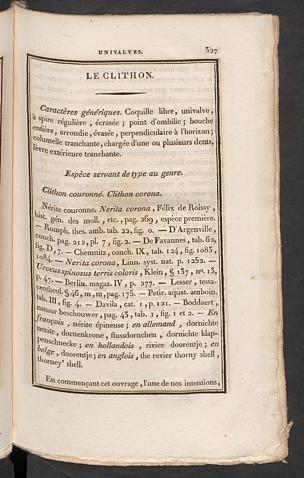 UNIVALVES. 327
LE CLITHON.
Caractères génériques. Coquille libre, univalve,
à spire régulière, écrasée; point d'ombilic; bouche
entière, arrondie, évasée, perpendiculaire à l'horizon;
columelle tranchante, chargée d'une ou plusieurs dents,
lèvre extérieure tranchante.
Espèce servant de type au genre.
Clithon couronné. Clithon corona.
Nérite couronne. Nerita corona, Félix de Roissy,
hist. gén. des moll., etc., pag. 269, espèce première.
— Rumph. thes. amb. tab. 22, fig. 0. — D'Argenville,
conch. pag. 212, pl. 7, fig. 2. — De Favannes, tab. 62,
fig. D, 7. — Chemnitz, conch. IX, tab. 124, fig. 1083,
1084. — Nerita corona, Linn. syst. nat. p. 1252. —
Urceus spinosus terris coloris, Klein, § 137, nº. 15,
p. 47. — Berlin. magaz. IV, p. 277. — Lesser, testa-
ceotheol. § 46, m, m, pag. 175. — Petir. aquat. amboin.
tab. III, fig. 4. — Davila, cat. 1, p. 121. — Boddaert,
natuur beschouwer, pag. 45, tab. 1, fig. 1 et 2. — En
françois, nérite épineuse; en allemand, dornichte
netrite, dornenkrone, flussdornichen, dornichte klap-
penschnecke; en hollandois, rivier doorentje; en
belge, doorentje; en anglois, the revier thorny shell,
thorney' shell.
En commençant cet ouvrage, l'une de nos intentions,